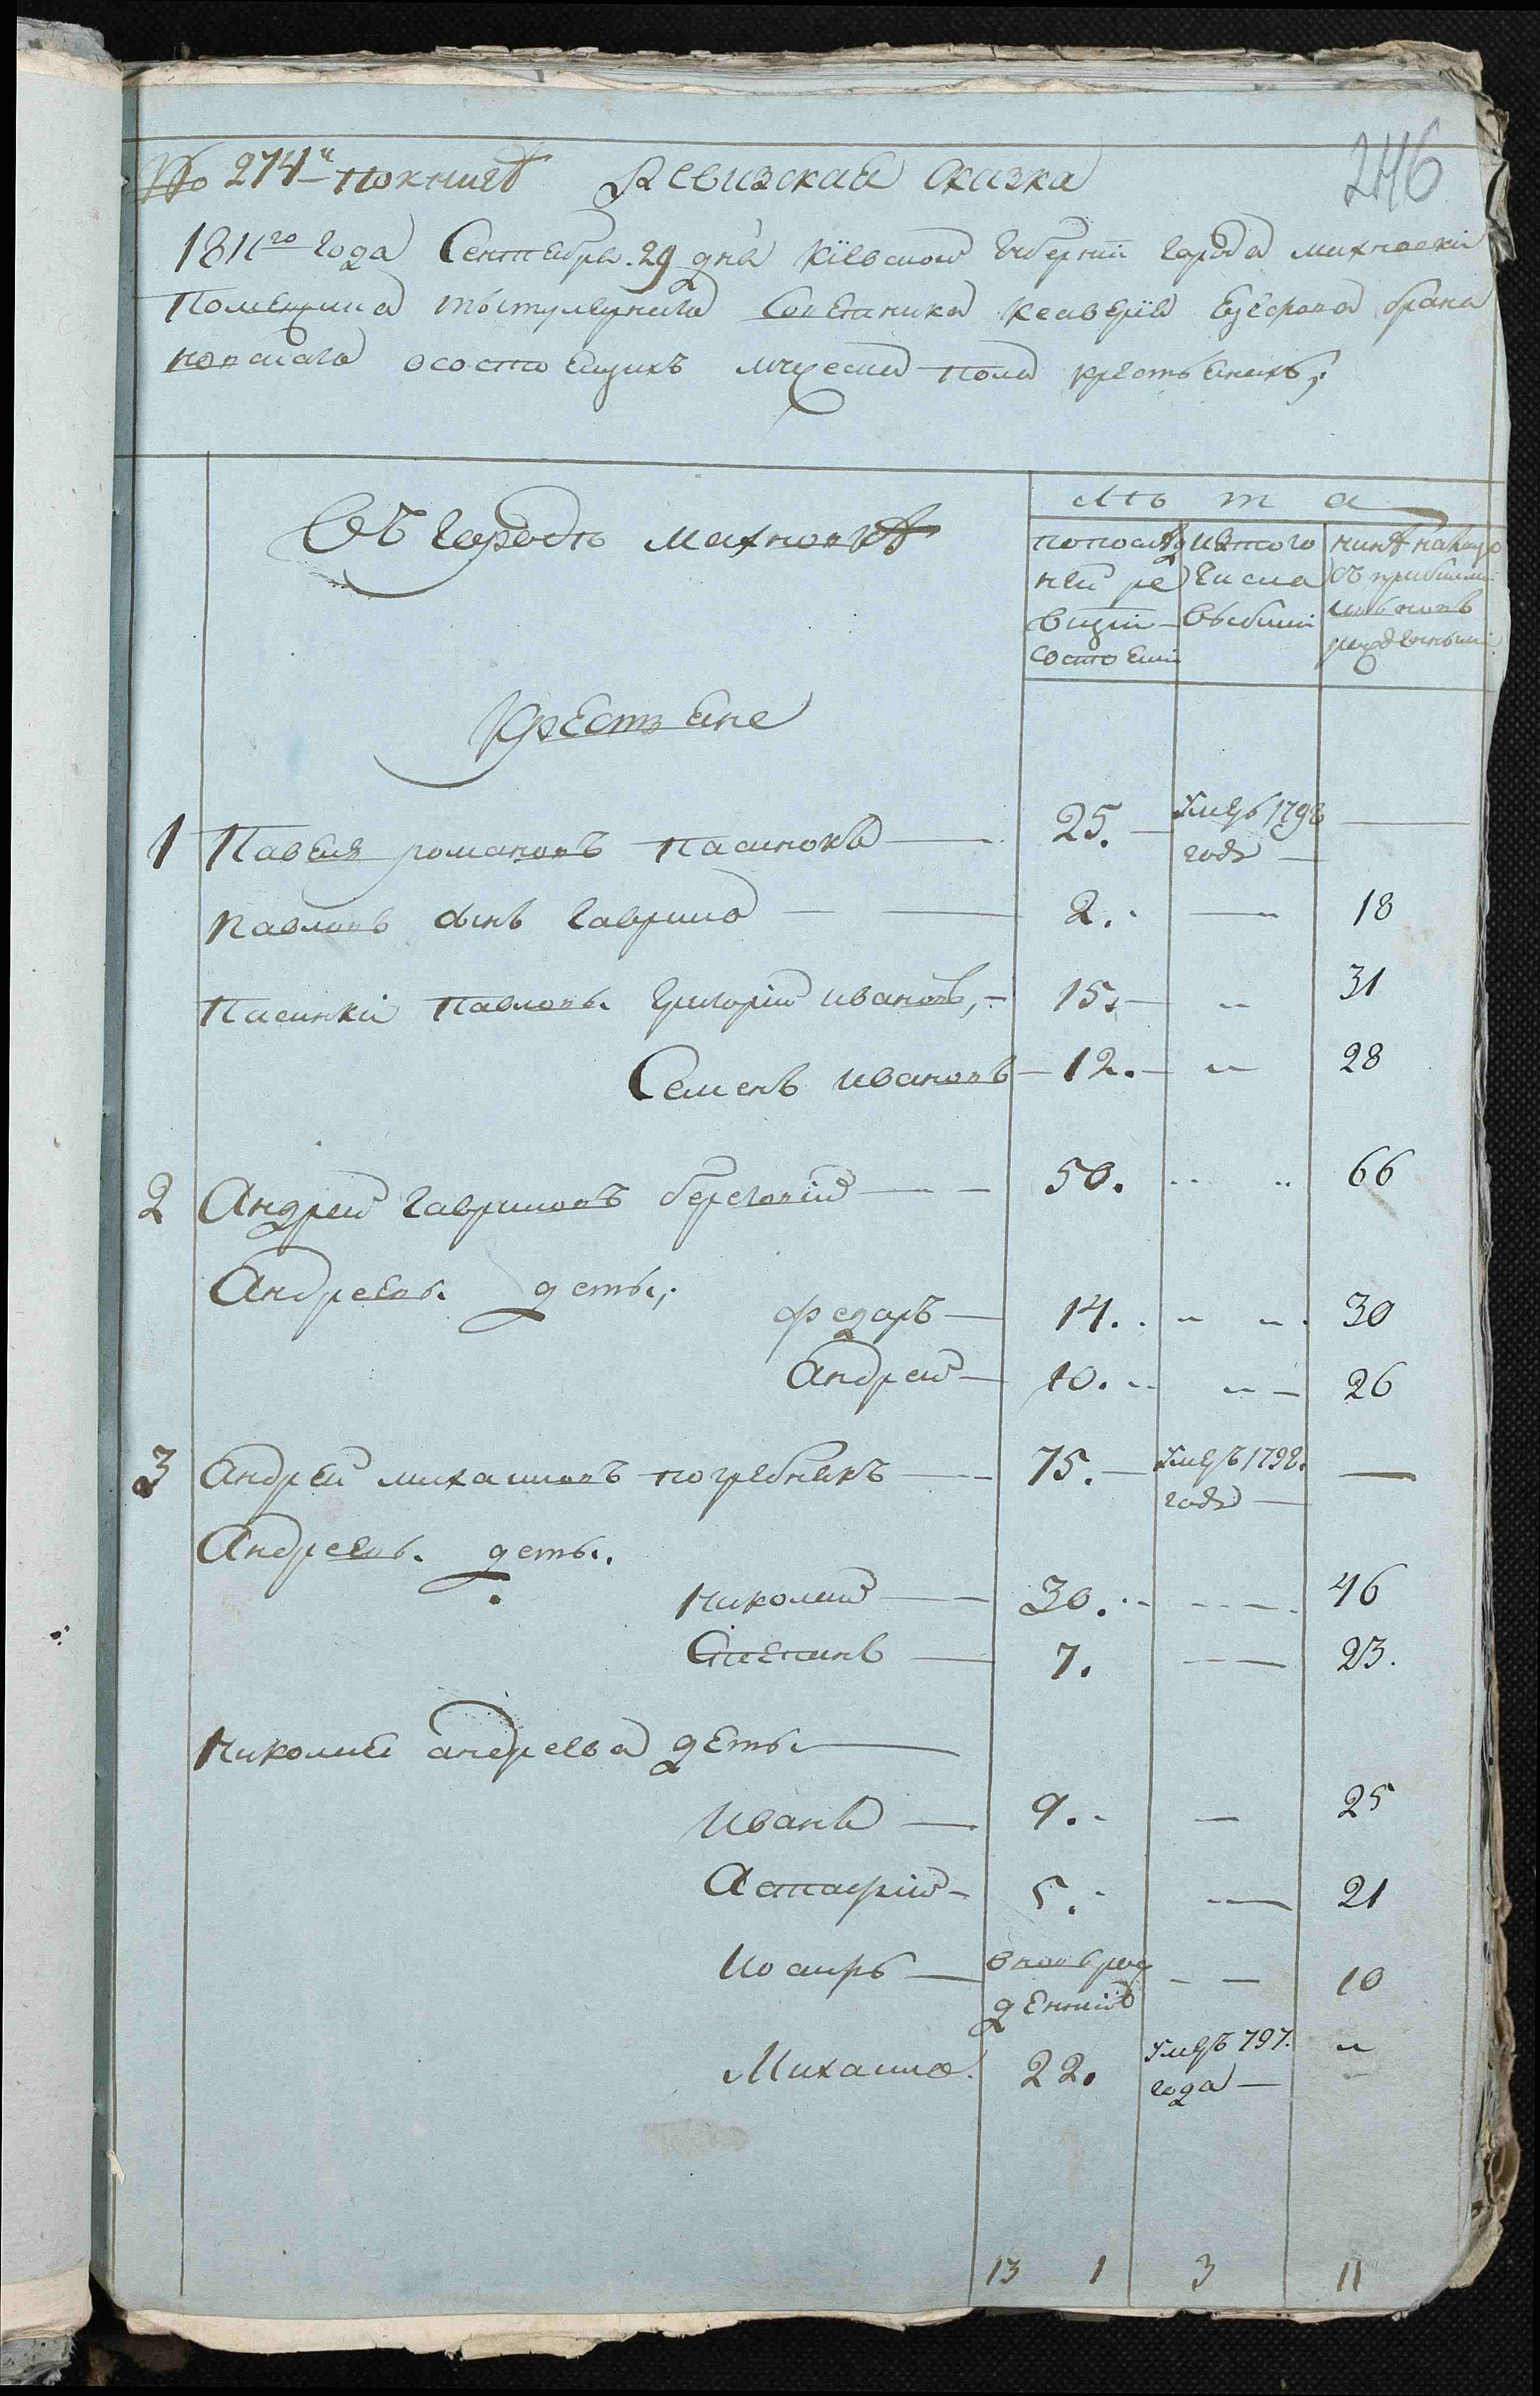 № 274й по книге Ревизская Сказка 246
1811го года Сентября 29 дня Кіевской Губерніи города махновки
Помещика титулярнаго Советника Ксаверія
о состоящихъ мужеска пола крестьянахъ;
Лѣта
Въ городѣ махновкѣ
по послѣдней ревизіи состояли
из того числа выбыли
нынѣ на лицо съ прибылыми и вновь рожденными
Крестьяне
1 Павелъ романовъ пасинокъ — 25. — Умеръ 1798 года —
Павловъ сынъ гаврило — 2. — 18
Пасинки Павловы Григорій ивановъ, — 15. — „ 31
Семенъ ивановъ — 12. — „ 28
2 Андрей гавриловъ береговій — 50. „ „ 66
Андреевы дети;
федоръ — 14. „ „ 30
Андрей — 10. „ „ 26
3 Андрей михаиловъ погребнякъ — 75. — Умеръ 1792. года —
Андреевы дети.
Николай — 30. — 46
Степанъ — 7. — 23.
Николая андреева дети —
Иванъ — 9. — 25
Астафій — 5. — 21
Иосифъ — вновь рожденній — 10
Михаило. 22. Умеръ 797. года — „
13 1 3 11